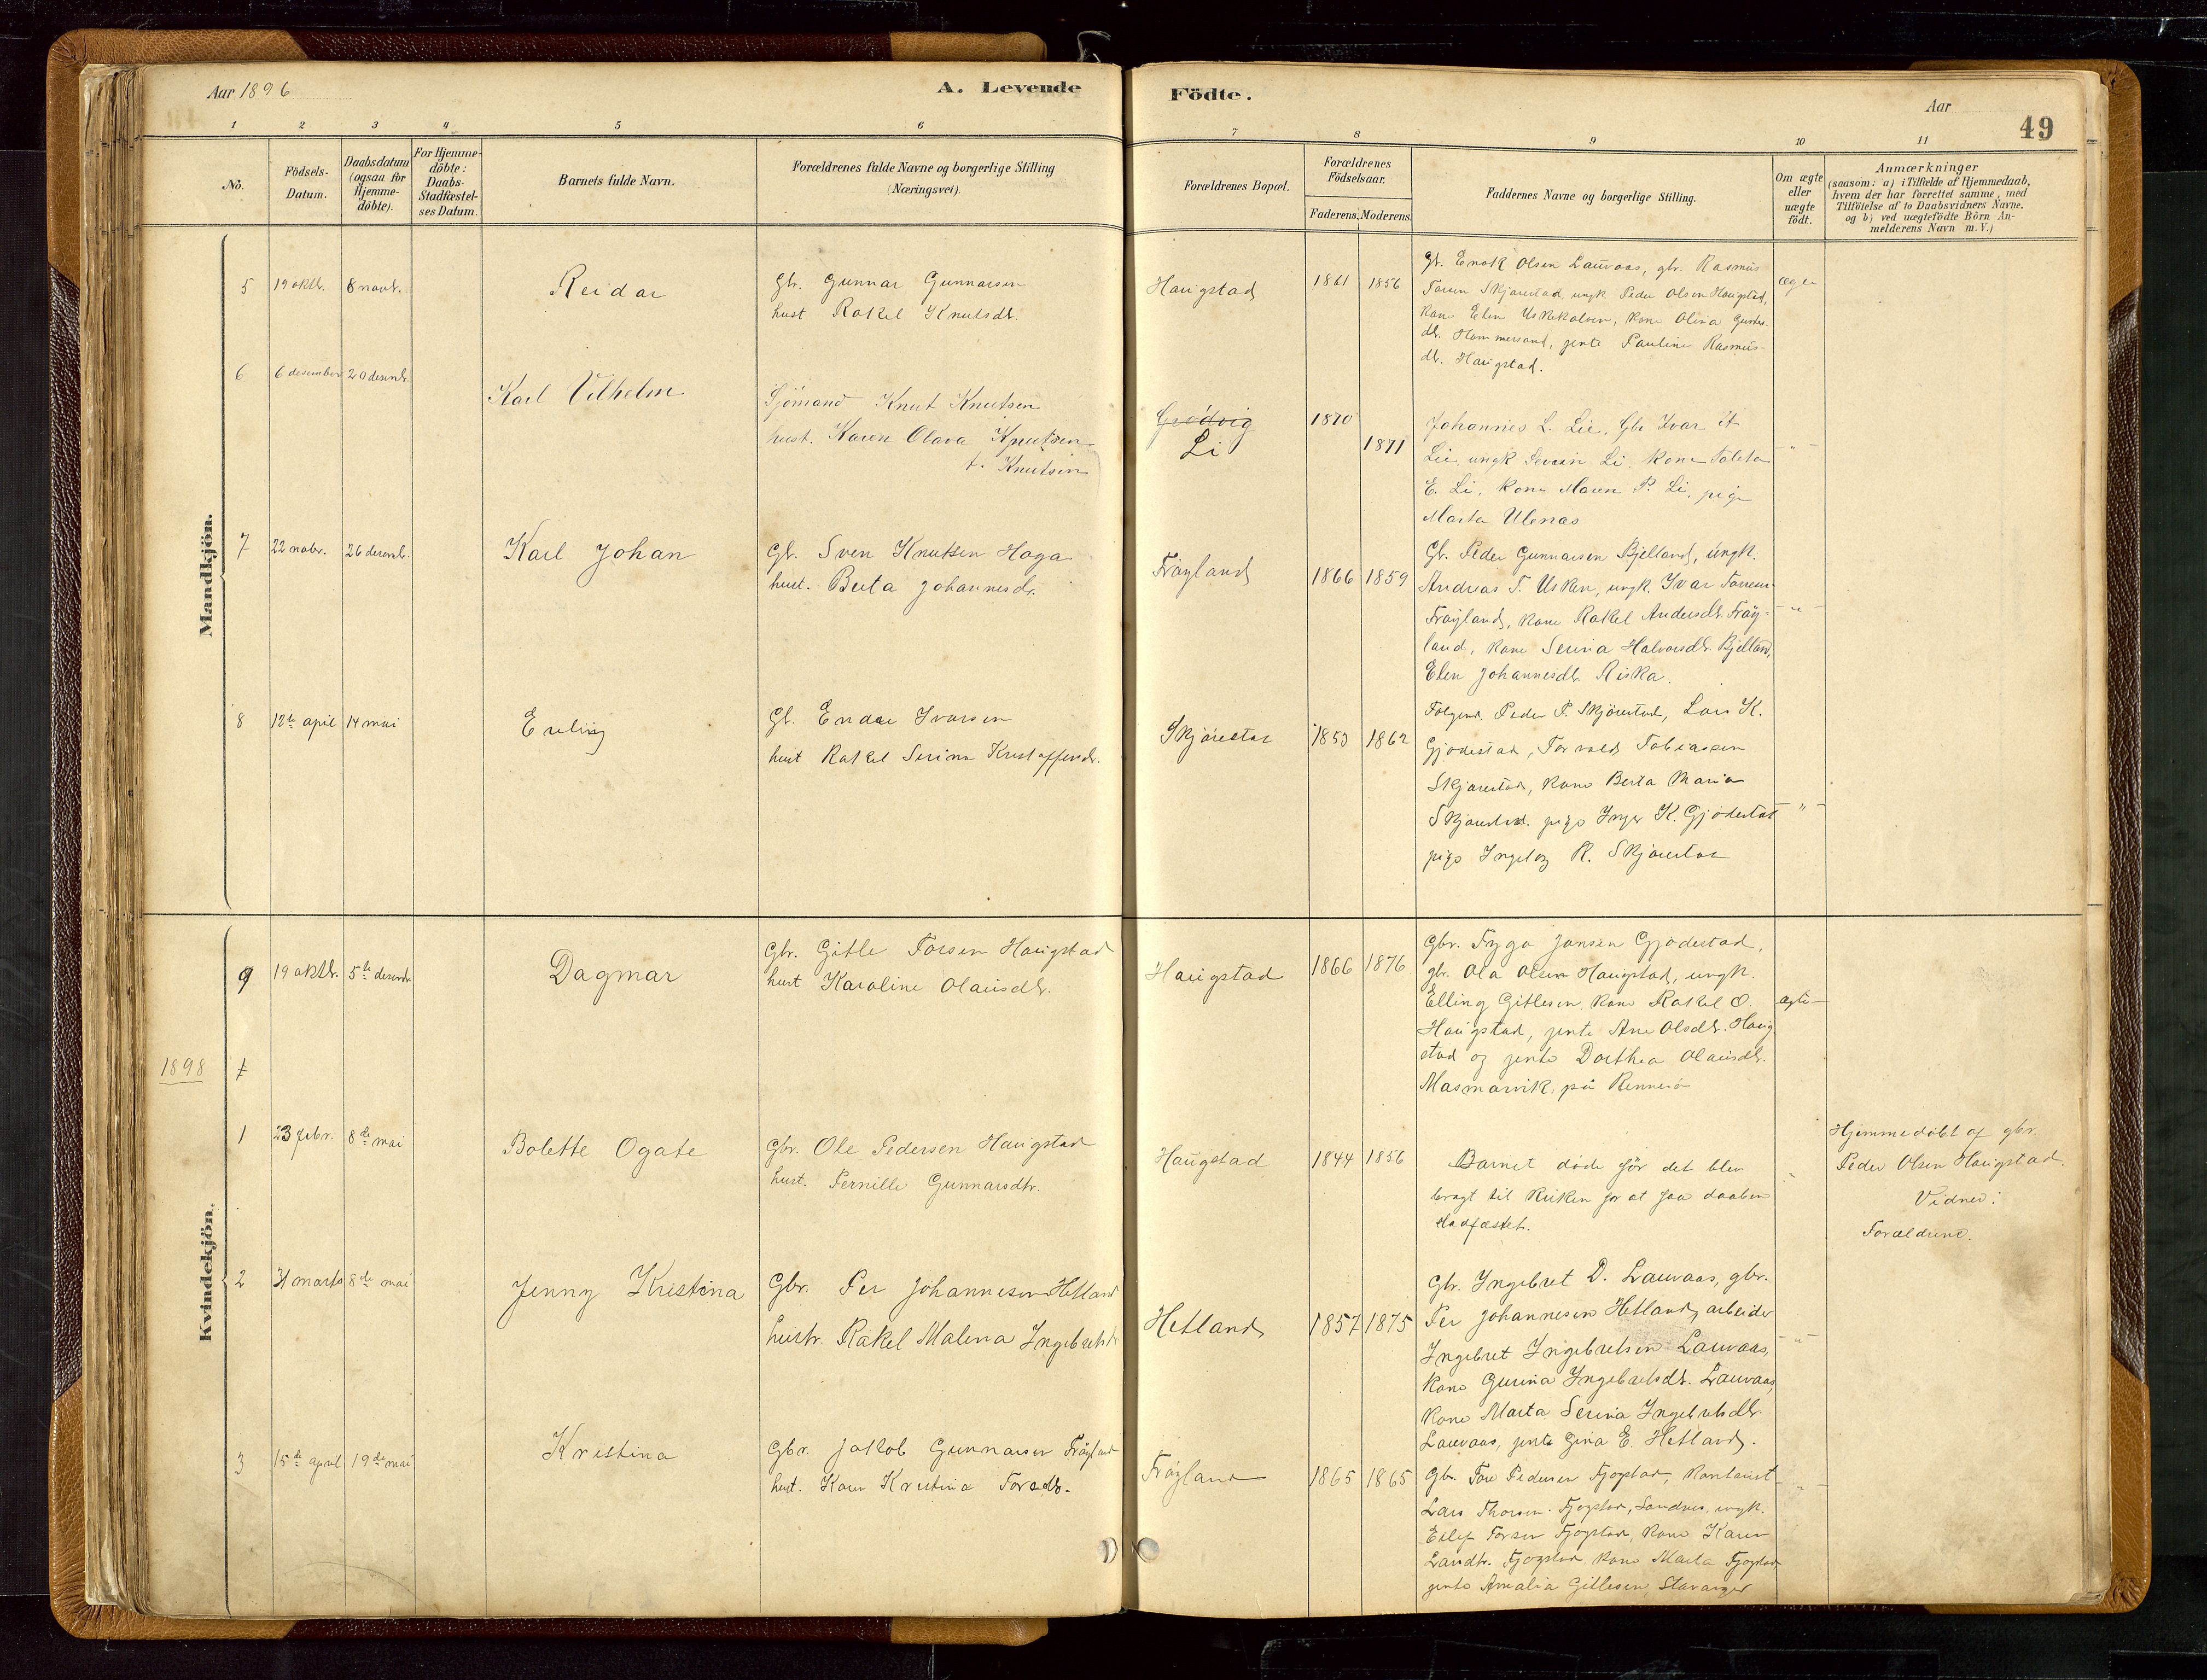 Aar 1896
A. Levende
Födte.
Aar
49
1 2 3 4 5 6 7 8 9 10 11
No.
Födsels-
Datum.
Daabsdatum
(ogsaa for
Hjemme-
döbte).
For Hjemme-
döbte:
Daabs-
Stadfæstel-
ses Datum.
Barnets fulde Navn.
Forældrenes fulde Navne og borgerlige Stilling
(Næringsvei).
Forældrenes Bopæl.
Forældrenes
Födselsaar.
Faderens. Moderens.
Faddernes Navne og borgerlige Stilling.
Om ægte
eller
uægte
födt.
Anmærkninger
(saasom: a) i Tilfælde af Hjemmedaab,
hvem der har forrettet samme, med
Tilföielse af to Daabsvidners Navne,
og b) ved uægtefödte Börn An-
melderens Navn m.V.)
Mandkjön.
5 19 oktb. 8 novb.
Reidar
Gb. Gunnar Gunnarsen
hust Rakel Knutsdt.
Haugstad
1861 1856
Gb. Enok Olsen Lauvaas, gbr. Rasmus
Skjørestad, ungk. Peder Olsen Haugstad,
kone Elen Uskekalven, kone Olina
dt. Hammersant, jente Pauline Rasmus-
dt. Haugstad.
6 6 desember 20 desemb.
Karl Vilhelm
Sjömand Knut Knutsen
hust. Karen Olava Knutsen
f. Knutsen
Grödvig
Li
1870
1871
Johannes L. Lie, Gbr Ivar
Lie, ungk Li, kone
E. Li, kone Maren P. Li, pige
Marta Ulenas
"
7 22 nobr. 26 desemb.
Karl Johan
Gb. Sven Knutsen Haga
hust. Berta Johannesdt.
Frøyland
1866 1859
Gb. Peder Gunnarsen Bjelland, ungk.
Andreas T. Usken, ungk. Ivar
Frøyland, kone Rakel Andersdt. Frøy-
land, kone Serina Halvorsdt. Bjelland,
Elen Johannesdt. Riska.
"
8 12te april 14 mai
Erling
Gb. Endre Ivarsen
hust Rakel Serina Kristoffersdt.
Skjørestad
1853 1862
Peder P. Skjørestad, Lars K.
Gjødestad, Torvald Tobiassen
Skjørestad, kone Berta Maria
Skjørestad. pige Inger K. Gjødestad
pige Ingeborg R. Skjørestad
"
Kvindekjön.
9 19 oktb. 5te desemb.
Dagmar
Gbr. Gitle Torsen Haugstad
hust Karoline Olausdt.
Haugstad
1866 1876
Gbr. Jansen Gjødestad,
gbr. Ola Olsen Haugstad, ungk.
Elling Gitlesen, kone Rakel O.
Haugstad, jente Ane Olsdt. Haug-
stad og jente Dorthea Olausdt.
Masmarvik, på Rennesø
ægte
1898
1 23 febr. 8de mai
Bolette Ogate
Gbr. Ole Pedersen Haugstad
hust. Pernille Gunnarsdtr.
Haugstad
1844 1856
Barnet døde før det blev
bragt til Kirken for at faa daaben
stadfæstet.
"
Hjemmedøbt af gbr.
Peder Olsen Haugstad.
Vidner:
Forældrene.
2 31 marts 8de mai
Jenny Kristina
Gbr. Per Johannesen Hetland
hustr. Rakel Malena Ingebretsdt
Hetland
1857 1875
Gbr. Ingebret D. Lauvaas, gbr.
Per Johannesen Hetland, arbeider
Ingebret Ingebretsen Lauvaas,
kone Gurina Ingebretsdt. Lauvaas,
kone Marta Serina Ingebretsdt.
Lauvaas, jente Gina E. Hetland.
"
3 15de april 19de mai
Kristina
Gbr. Jakob Gunnarsen Frøyland
hust. Karen Kristina Toresdt.
Frøyland
1865 1865
Gbr. Tore Pedersen Fjogstad,
Lars Thorsen Fjogstad, Sandnes, ungk.
Eilef Torsen Fjogstad, kone Karen
Larsdtr. Fjogstad, kone Marta Fjogstad
jente Amalia Gitlesen, Stavanger
"